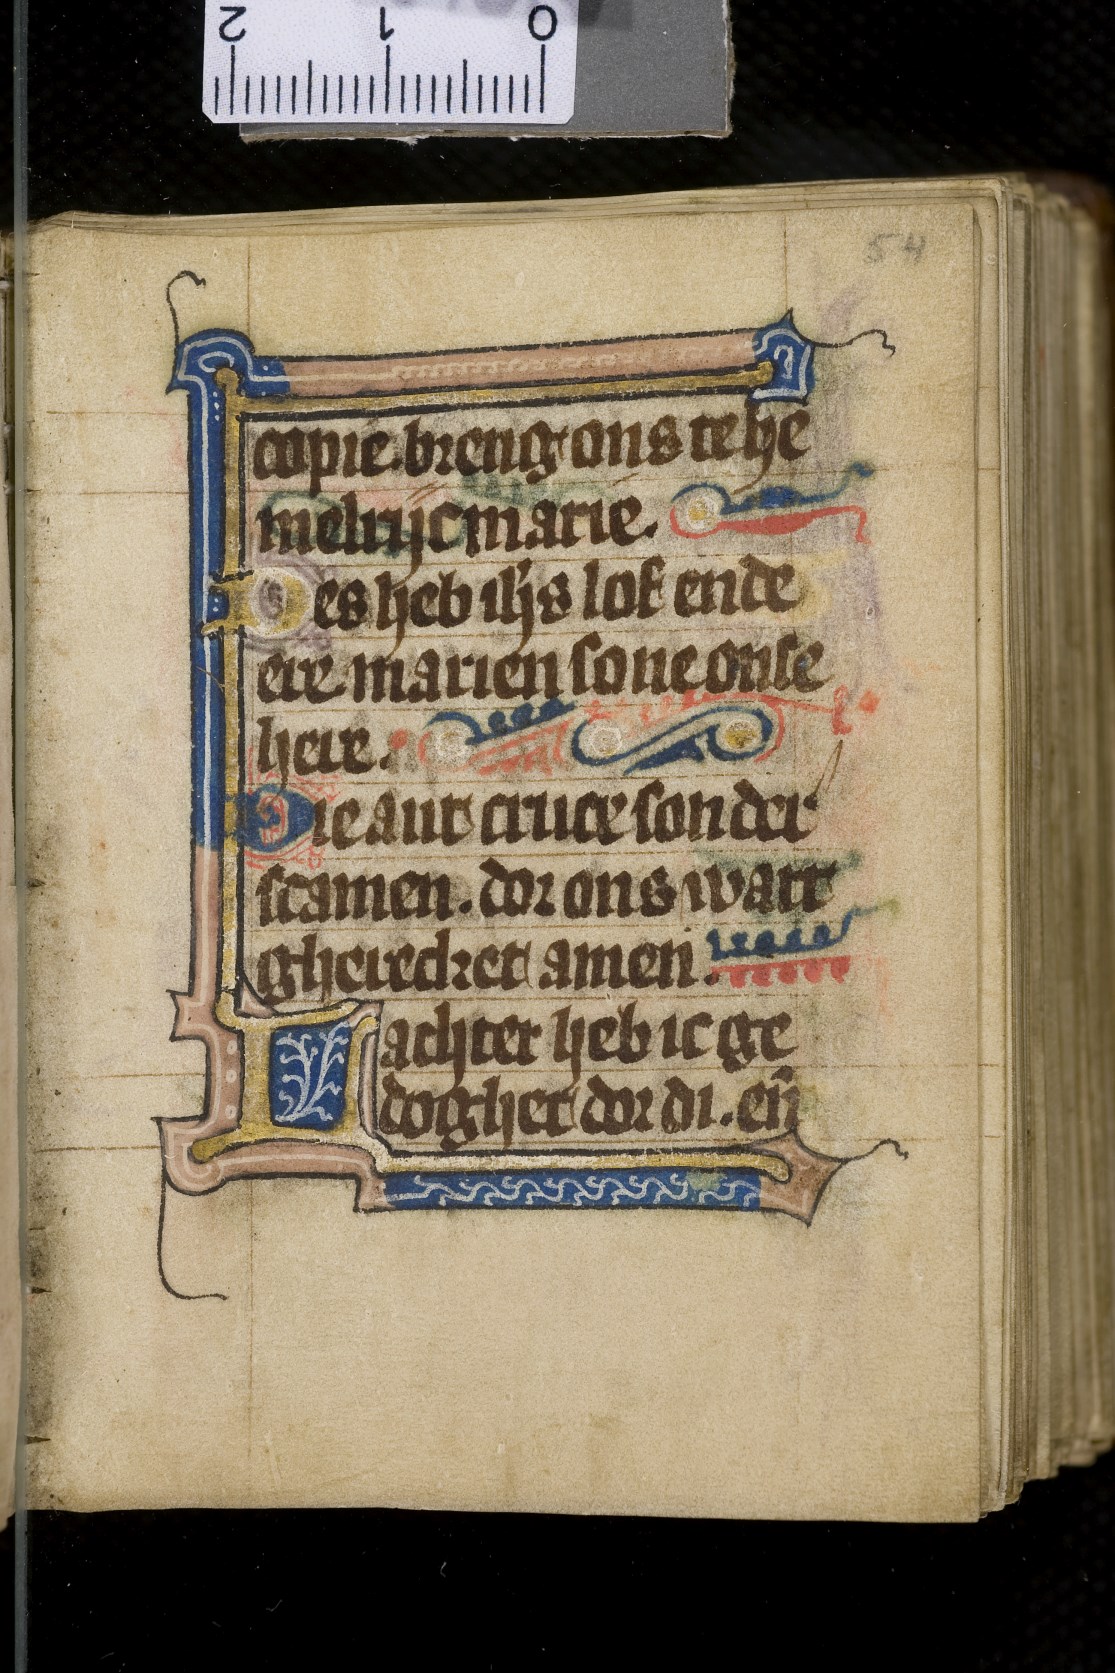 2 1 0
54
copie. breng ons te he
melrijc marie.
Des heb ihs lof ende
ere marien sone onse
here.
Die ant cruce sonder
scamen. dor ons wart
gherecket amen.
Lachter heb ic ge
doghet dor di. en̄